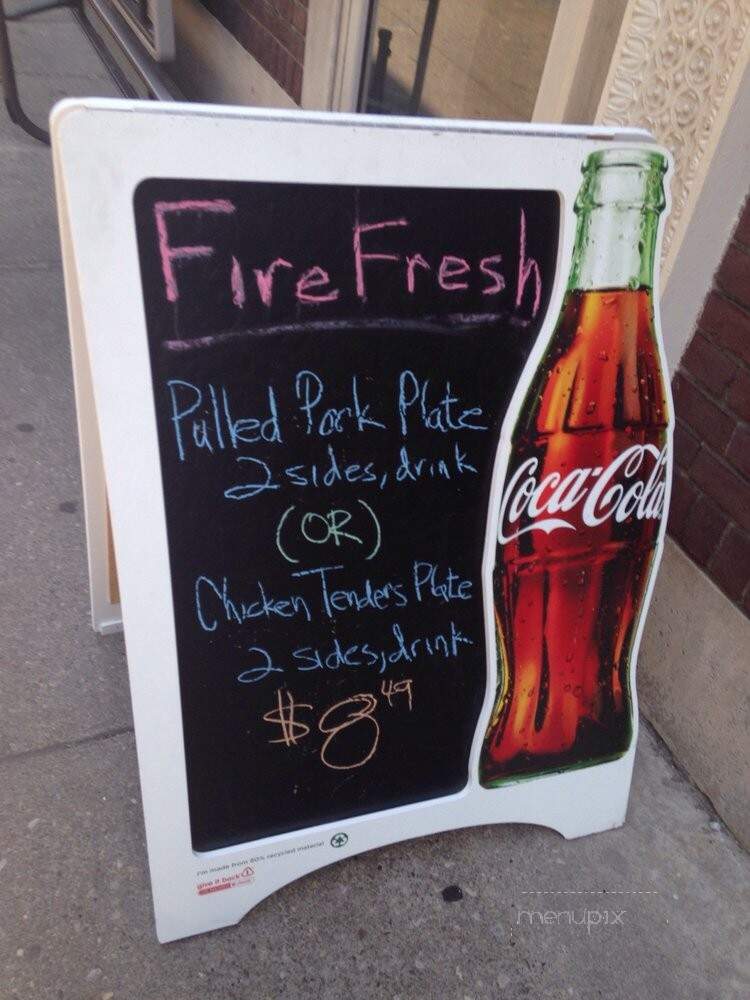 Fire Fresh
Pulled Pork Plate
2 sides, drink
(OR)
Chicken Tenders Plate
2 sides, drink
$8.49
Coca-Cola
I'm made from 80% recycled material
give it back
menupix